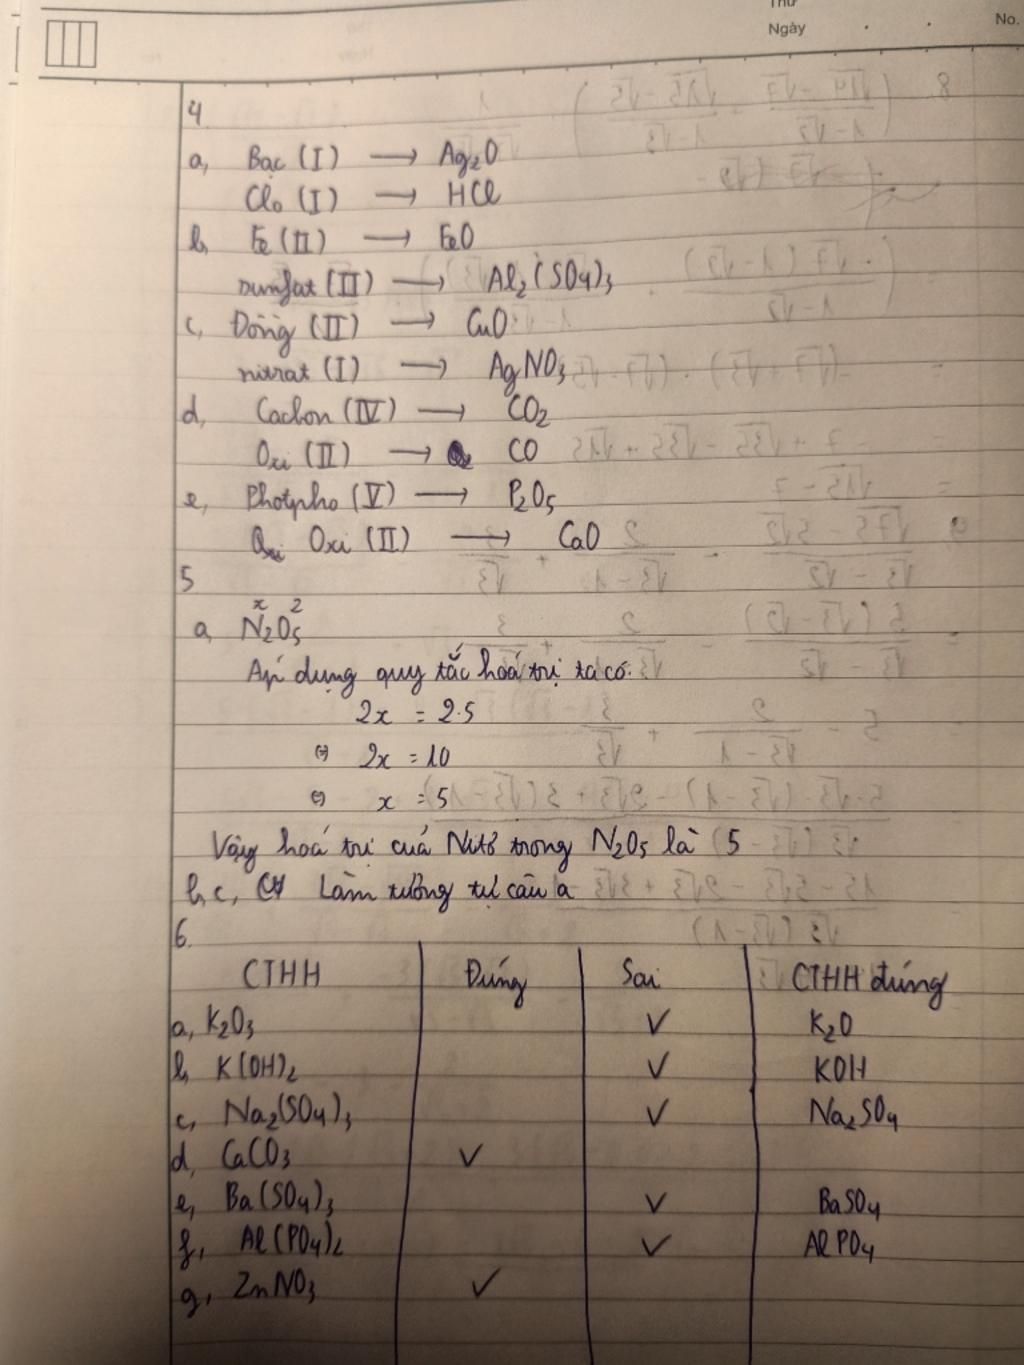 Thứ
Ngày . . No.
4
a, Bạc (I) → Ag₂O
Clo (I) → HCl
b, Fe (II) → FeO
sunfat (II) → Al₂(SO₄)₃
c, Đồng (II) → CuO
nitrat (I) → AgNO₃
d, Cacbon (IV) → CO₂
Oxi (II) → CO
e, Photpho (V) → P₂O₅
Oxi (II) → CaO
5
x 2
a, N₂O₅
Áp dụng quy tắc hoá trị ta có:
2x = 2.5
⇔ 2x = 10
⇔ x = 5
Vậy hoá trị của Nitơ trong N₂O₅ là 5
b, c, Làm tương tự câu a
6.
CTHH Đúng Sai CTHH đúng
a, K₂O₃ ✓ K₂O
b, K(OH)₂ ✓ KOH
c, Na₂(SO₄)₃ ✓ Na₂SO₄
d, CaCO₃ ✓
e, Ba(SO₄)₃ ✓ BaSO₄
f, Al(PO₄)₂ ✓ AlPO₄
g, ZnNO₃ ✓